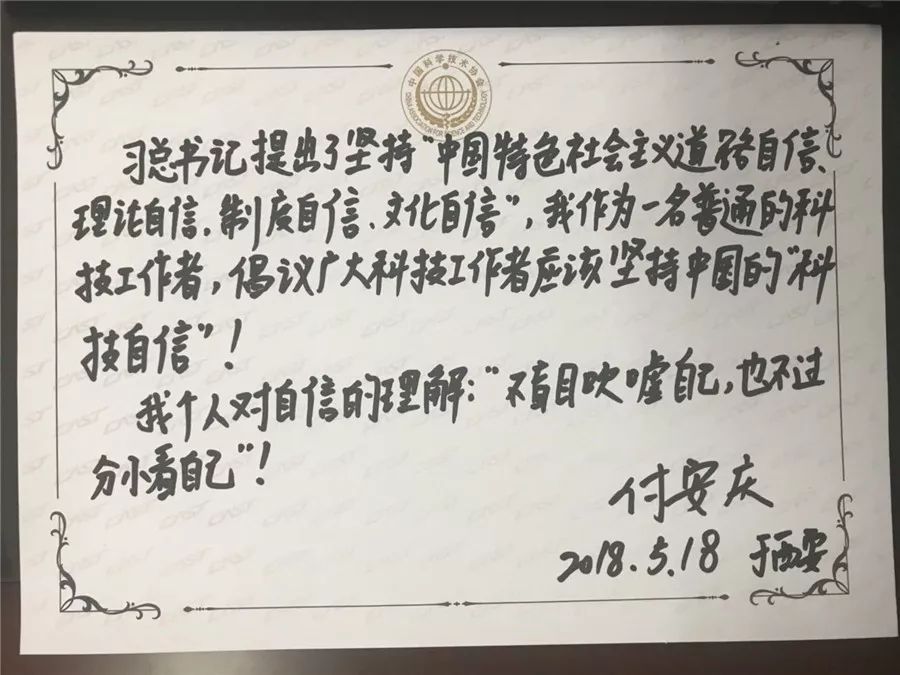 中国科学技术协会
CHINA ASSOCIATION FOR SCIENCE AND TECHNOLOGY
习总书记提出了坚持“中国特色社会主义道路自信、
理论自信、制度自信、文化自信”，我作为一名普通的科
技工作者，倡议广大科技工作者应该坚持中国的“科
技自信”！
我个人对自信的理解：“不盲目吹嘘自己，也不过
分小看自己”！
付安庆
2018.5.18 于西安